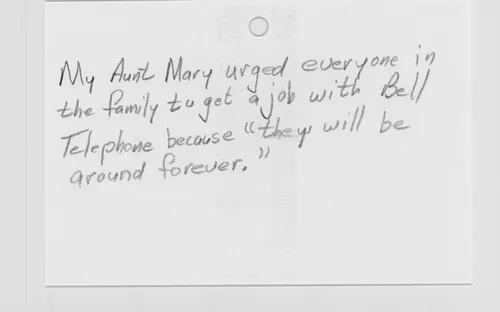 My Aunt Mary urged everyone in
the family to get a job with Bell
Telephone because "they will be
around forever."